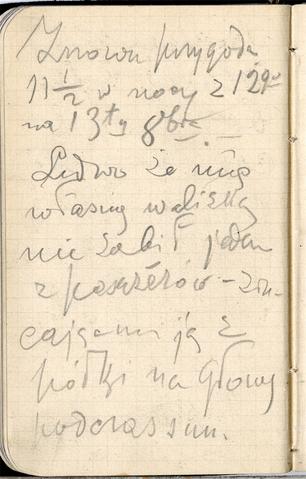 Znowu przygoda
11 1/2 w nocy z 12go
na 13ty 8bra
Ledwo że mię
własną walizką
nie zabił jeden
z pasażerów – zru-
cając mi ją z
półki na głowę
podczas snu.